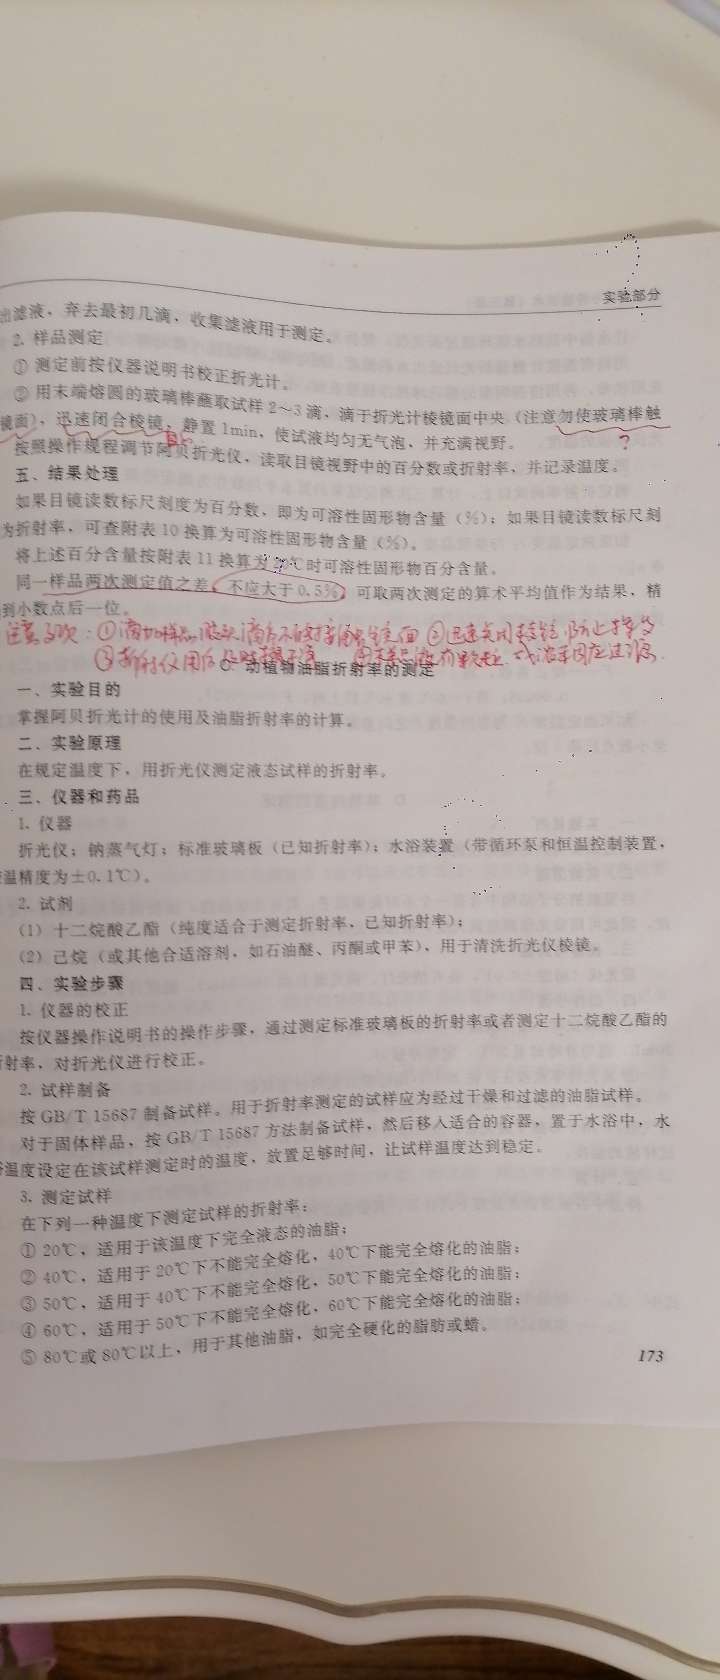 实验部分
出滤液，弃去最初几滴，收集滤液用于测定。
2. 样品测定
① 测定前按仪器说明书校正折光计。
② 用末端熔圆的玻璃棒蘸取试样 2～3 滴，滴于折光计棱镜面中央（注意勿使玻璃棒触
镜面），迅速闭合棱镜，静置 1min，使试液均匀无气泡，并充满视野。
？
按照操作规程调节阿贝折光仪，读取目镜视野中的百分数或折射率，并记录温度。
五、结果处理
如果目镜读数标尺刻度为百分数，即为可溶性固形物含量（%）；如果目镜读数标尺刻
为折射率，可查附表 10 换算为可溶性固形物含量（%）。
将上述百分含量按附表 11 换算为 20℃时可溶性固形物百分含量。
同一样品两次测定值之差，不应大于 0.5%，可取两次测定的算术平均值作为结果，精
到小数点后一位。
注意事项：①滴加样品 滴管不 ②迅速关闭棱镜 防止挥发
③折射仪用后 ④样品液
C. 动植物油脂折射率的测定
一、实验目的
掌握阿贝折光计的使用及油脂折射率的计算。
二、实验原理
在规定温度下，用折光仪测定液态试样的折射率。
三、仪器和药品
1. 仪器
折光仪；钠蒸气灯；标准玻璃板（已知折射率）；水浴装置（带循环泵和恒温控制装置，
温精度为±0.1℃）。
2. 试剂
（1）十二烷酸乙酯（纯度适合于测定折射率，已知折射率）；
（2）己烷（或其他合适溶剂，如石油醚、丙酮或甲苯），用于清洗折光仪棱镜。
四、实验步骤
1. 仪器的校正
按仪器操作说明书的操作步骤，通过测定标准玻璃板的折射率或者测定十二烷酸乙酯的
折射率，对折光仪进行校正。
2. 试样制备
按 GB/T 15687 制备试样。用于折射率测定的试样应为经过干燥和过滤的油脂试样。
对于固体样品，按 GB/T 15687 方法制备试样，然后移入适合的容器，置于水浴中，水
浴温度设定在该试样测定时的温度，放置足够时间，让试样温度达到稳定。
3. 测定试样
在下列一种温度下测定试样的折射率：
① 20℃，适用于该温度下完全液态的油脂；
② 40℃，适用于 20℃下不能完全熔化，40℃下能完全熔化的油脂；
③ 50℃，适用于 40℃下不能完全熔化，50℃下能完全熔化的油脂；
④ 60℃，适用于 50℃下不能完全熔化，60℃下能完全熔化的油脂；
⑤ 80℃或 80℃以上，用于其他油脂，如完全硬化的脂肪或蜡。
173